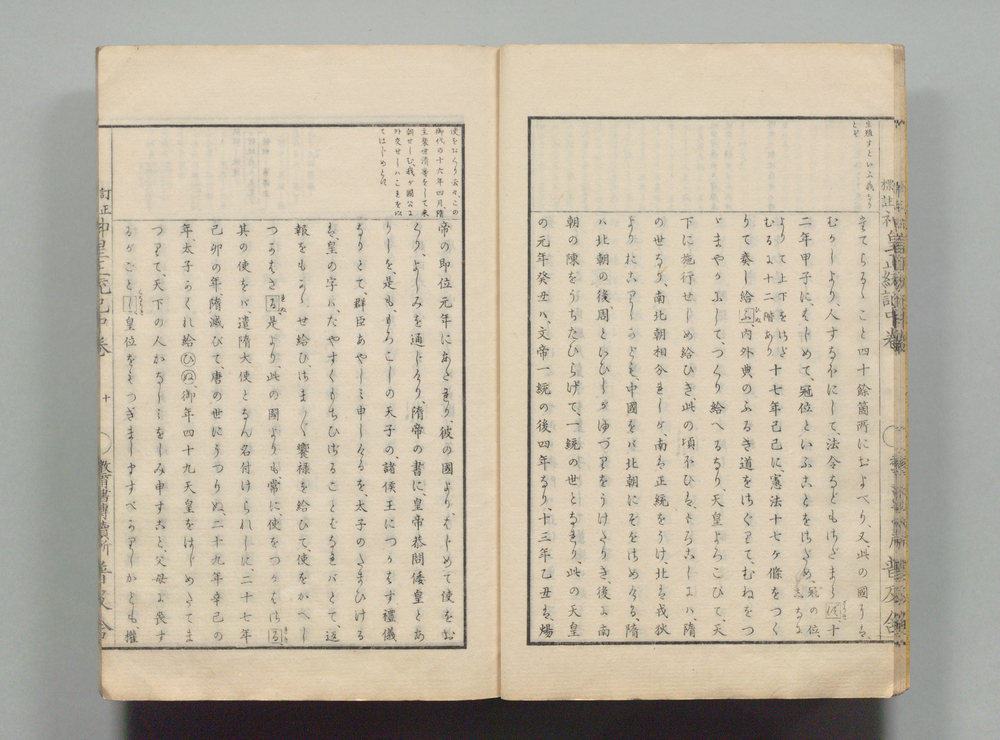 まてらるゝこと四十餘箇所におよべり、又此の國うるゝ
むかしより人すなほにして法令などもさだまらず、十
二年甲子に、はじめて冠位といふことをさだめ、冠の位
よりて上下をさだむるに十二階あり
十七年己巳に、憲法十七ヶ條をつく
りて奏し給ふ、内外典のふるき道をさぐりて、むねをつ
ゞまやかにして、つくり給へるなり、天皇よろこびて、天
下に施行せしめ給ひき、此の頃ほひは、もろこしには、隋
の世なり、南北朝相分れしが、南は正統をうけ、北は戎狄
よりおこりしかども、中國をば北朝にぞをさめける、隋
は北朝の後周といひしがゆづりをうけたりき、後に南
朝の陳をうちたひらげて、一統の世となれり、此の天皇
の元年癸丑は、文帝一統の後四年なり、十三年乙丑は、煬
使をおくり云々、この
御代の十六年四月、隋
主裴世淸等をして來
朝せしむ、我が國公に
外交せしはこれを以
てはじめとす
帝の即位元年にあたれり、彼の國より、はじめて使をお
くり、よしみを通じけり、隋帝の書に、皇帝恭問倭皇とあ
りしを、是はもろこしの天子の、諸侯王につかはす禮儀
なりとて、群臣あやしみ申しけるを、太子のたまひける
は、皇の字はたやすくもちひざることばなればとて、返
報をもかゝせ給ひ、さまざま饗祿を給ひて、使をかへし
つかはさる、是より、此の國よりも、常に使をつかはさる、
其の使をば、遣隋大使となん名付けられしに、二十七年
己卯の年、隋滅びて唐の世にうつりぬ、二十九年辛巳の
年太子かくれ給ひぬ、御年四十九天皇をはじめたてま
つりて、天下の人かなしみをしみ申すこと、父母に喪す
るがごとし、皇位をもつぎましますべかりしかども、權
訂正神皇正統記中卷
十
教育書轉賣所
普及舍